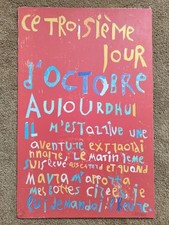 CE TROISIÈME
JOUR
d'OCTOBRE
AUJOURDHUI
IL M'EST ARRIVE UNE
AVENTURE EXTRAORDI
NNAIRE, LE MATIN JE ME
SUIS LEVÉ ET QUAND
MARIA M'APPORTA
MES BOTTES CIRÉES, JE
LUI DEMANDAI L'HEURE.